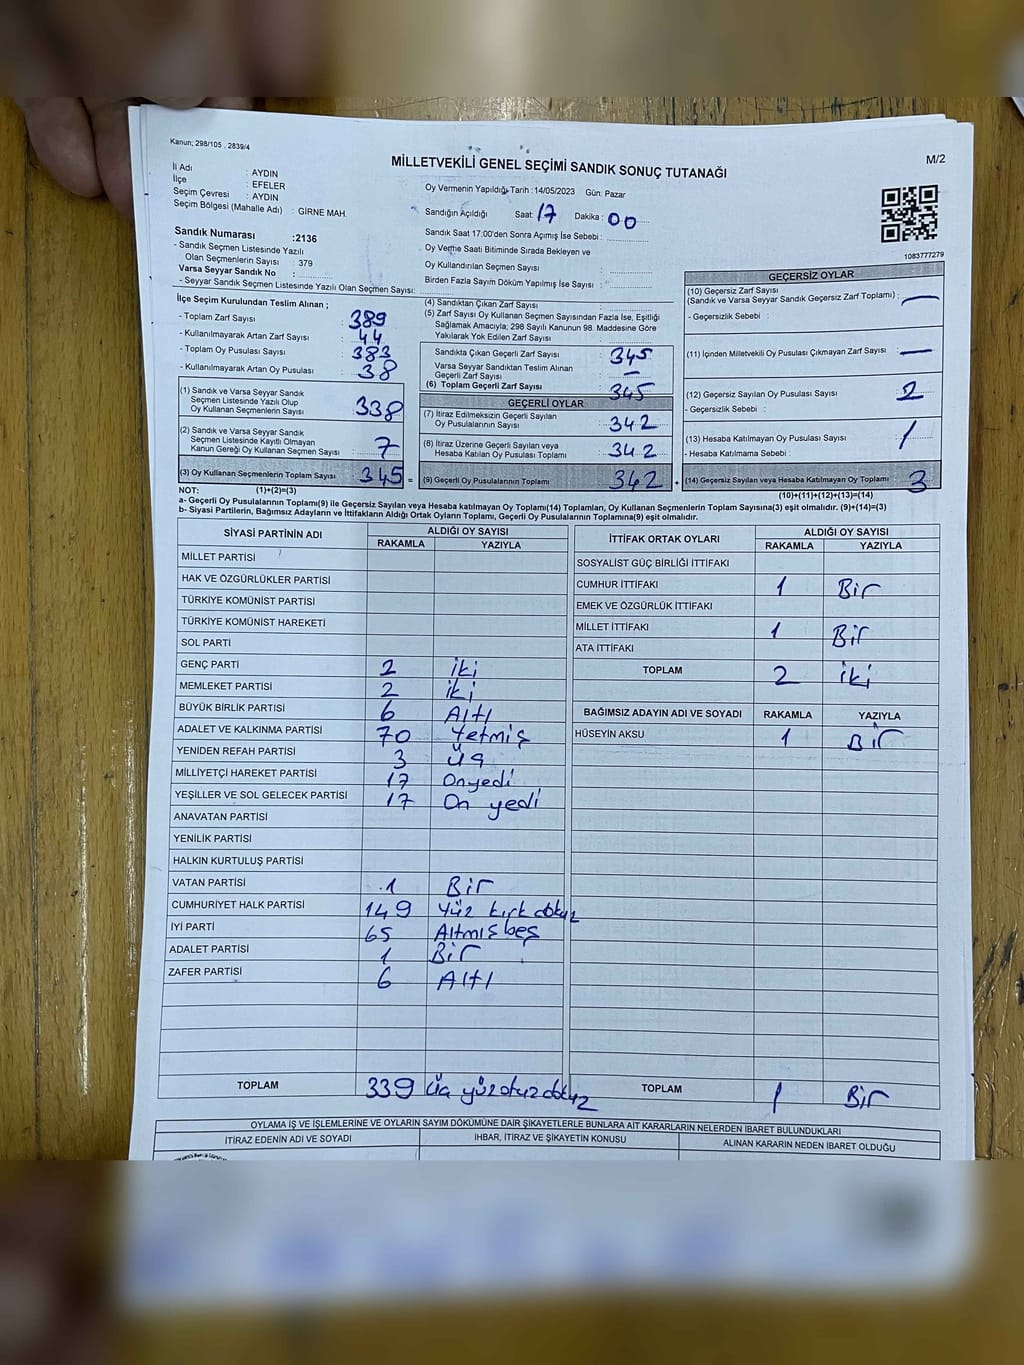 Kanun; 298/105 , 2839/4
MİLLETVEKİLİ GENEL SEÇİMİ SANDIK SONUÇ TUTANAĞI
M/2
İl Adı : AYDIN
İlçe : EFELER
Seçim Çevresi : AYDIN
Seçim Bölgesi (Mahalle Adı) : GİRNE MAH.
Sandık Numarası :2136
- Sandık Seçmen Listesinde Yazılı
Olan Seçmenlerin Sayısı : 379
Varsa Seyyar Sandık No :
- Seyyar Sandık Seçmen Listesinde Yazılı Olan Seçmen Sayısı:
Oy Vermenin Yapıldığı Tarih : 14/05/2023 Gün: Pazar
Sandığın Açıldığı Saat : 17 Dakika : 00
Sandık Saat 17.00'den Sonra Açılmış İse Sebebi :
Oy Verme Saati Bitiminde Sırada Bekleyen ve
Oy Kullandırılan Seçmen Sayısı :
Birden Fazla Sayım Döküm Yapılmış İse Sayısı :
1083777279
İlçe Seçim Kurulundan Teslim Alınan ;
- Toplam Zarf Sayısı : 389
- Kullanılmayarak Artan Zarf Sayısı : 44
- Toplam Oy Pusulası Sayısı : 383
- Kullanılmayarak Artan Oy Pusulası : 38
(1) Sandık ve Varsa Seyyar Sandık
Seçmen Listesinde Yazılı Olup
Oy Kullanan Seçmenlerin Sayısı : 338
(2) Sandık ve Varsa Seyyar Sandık
Seçmen Listesinde Kayıtlı Olmayan
Kanun Gereği Oy Kullanan Seçmen Sayısı : 7
(3) Oy Kullanan Seçmenlerin Toplam Sayısı 345 =
(4) Sandıktan Çıkan Zarf Sayısı :
(5) Zarf Sayısı Oy Kullanan Seçmen Sayısından Fazla İse, Eşitliği
Sağlamak Amacıyla; 298 Sayılı Kanunun 98. Maddesine Göre
Yakılarak Yok Edilen Zarf Sayısı :
Sandıkta Çıkan Geçerli Zarf Sayısı : 345
Varsa Seyyar Sandıktan Teslim Alınan
Geçerli Zarf Sayısı : —
(6) Toplam Geçerli Zarf Sayısı : 345
GEÇERLİ OYLAR
(7) İtiraz Edilmeksizin Geçerli Sayılan
Oy Pusulalarının Sayısı : 342
(8) İtiraz Üzerine Geçerli Sayılan veya
Hesaba Katılan Oy Pusulası Toplamı : 342
(9) Geçerli Oy Pusulalarının Toplamı : 342 +
GEÇERSİZ OYLAR
(10) Geçersiz Zarf Sayısı
(Sandık ve Varsa Seyyar Sandık Geçersiz Zarf Toplamı) : —
- Geçersizlik Sebebi :
(11) İçinden Milletvekili Oy Pusulası Çıkmayan Zarf Sayısı : —
(12) Geçersiz Sayılan Oy Pusulası Sayısı : 2
- Geçersizlik Sebebi :
(13) Hesaba Katılmayan Oy Pusulası Sayısı : 1
- Hesaba Katılmama Sebebi :
(14) Geçersiz Sayılan veya Hesaba Katılmayan Oy Toplamı : 3
NOT: (1)+(2)=(3)
(10)+(11)+(12)+(13)=(14)
a- Geçerli Oy Pusulalarının Toplamı(9) ile Geçersiz Sayılan veya Hesaba katılmayan Oy Toplamı(14) Toplamları, Oy Kullanan Seçmenlerin Toplam Sayısına(3) eşit olmalıdır. (9)+(14)=(3)
b- Siyasi Partilerin, Bağımsız Adayların ve İttifakların Aldığı Ortak Oyların Toplamı, Geçerli Oy Pusulalarının Toplamına(9) eşit olmalıdır.
SİYASİ PARTİNİN ADI ALDIĞI OY SAYISI
RAKAMLA YAZIYLA
MİLLET PARTİSİ
HAK VE ÖZGÜRLÜKLER PARTİSİ
TÜRKİYE KOMÜNİST PARTİSİ
TÜRKİYE KOMÜNİST HAREKETİ
SOL PARTİ
GENÇ PARTİ 2 iki
MEMLEKET PARTİSİ 2 iki
BÜYÜK BİRLİK PARTİSİ 6 Altı
ADALET VE KALKINMA PARTİSİ 70 Yetmiş
YENİDEN REFAH PARTİSİ 3 Üç
MİLLİYETÇİ HAREKET PARTİSİ 17 Onyedi
YEŞİLLER VE SOL GELECEK PARTİSİ 17 On yedi
ANAVATAN PARTİSİ
YENİLİK PARTİSİ
HALKIN KURTULUŞ PARTİSİ
VATAN PARTİSİ 1 Bir
CUMHURİYET HALK PARTİSİ 149 Yüz kırk dokuz
İYİ PARTİ 65 Altmış beş
ADALET PARTİSİ 1 Bir
ZAFER PARTİSİ 6 Altı
TOPLAM 339 Üç yüz otuz dokuz
İTTİFAK ORTAK OYLARI ALDIĞI OY SAYISI
RAKAMLA YAZIYLA
SOSYALİST GÜÇ BİRLİĞİ İTTİFAKI
CUMHUR İTTİFAKI 1 Bir
EMEK VE ÖZGÜRLÜK İTTİFAKI
MİLLET İTTİFAKI 1 Bir
ATA İTTİFAKI
TOPLAM 2 iki
BAĞIMSIZ ADAYIN ADI VE SOYADI RAKAMLA YAZIYLA
HÜSEYİN AKSU 1 Bir
TOPLAM 1 Bir
OYLAMA İŞ VE İŞLEMLERİNE VE OYLARIN SAYIM DÖKÜMÜNE DAİR ŞİKAYETLERLE BUNLARA AİT KARARLARIN NELERDEN İBARET BULUNDUKLARI
İTİRAZ EDENİN ADI VE SOYADI İHBAR, İTİRAZ VE ŞİKAYETİN KONUSU ALINAN KARARIN NEDEN İBARET OLDUĞU